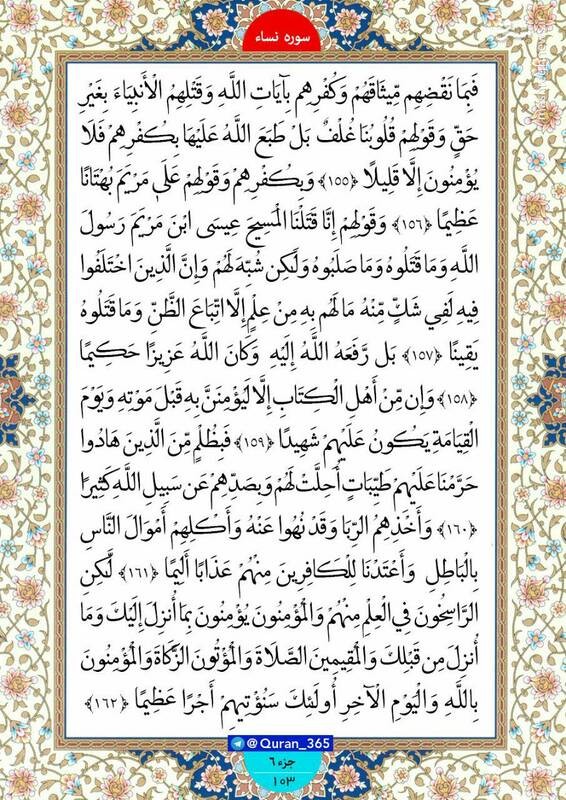 سوره نساء
فَبِمَا نَقْضِهِم مِّيثَاقَهُمْ وَكُفْرِهِم بِآيَاتِ اللَّهِ وَقَتْلِهِمُ الْأَنبِيَاءَ بِغَيْرِ
حَقٍّ وَقَوْلِهِمْ قُلُوبُنَا غُلْفٌ بَلْ طَبَعَ اللَّهُ عَلَيْهَا بِكُفْرِهِمْ فَلَا
يُؤْمِنُونَ إِلَّا قَلِيلًا ﴿١٥٥﴾ وَبِكُفْرِهِمْ وَقَوْلِهِمْ عَلَىٰ مَرْيَمَ بُهْتَانًا
عَظِيمًا ﴿١٥٦﴾ وَقَوْلِهِمْ إِنَّا قَتَلْنَا الْمَسِيحَ عِيسَى ابْنَ مَرْيَمَ رَسُولَ
اللَّهِ وَمَا قَتَلُوهُ وَمَا صَلَبُوهُ وَلَٰكِن شُبِّهَ لَهُمْ وَإِنَّ الَّذِينَ اخْتَلَفُوا
فِيهِ لَفِي شَكٍّ مِّنْهُ مَا لَهُم بِهِ مِنْ عِلْمٍ إِلَّا اتِّبَاعَ الظَّنِّ وَمَا قَتَلُوهُ
يَقِينًا ﴿١٥٧﴾ بَل رَّفَعَهُ اللَّهُ إِلَيْهِ وَكَانَ اللَّهُ عَزِيزًا حَكِيمًا
﴿١٥٨﴾ وَإِن مِّنْ أَهْلِ الْكِتَابِ إِلَّا لَيُؤْمِنَنَّ بِهِ قَبْلَ مَوْتِهِ وَيَوْمَ
الْقِيَامَةِ يَكُونُ عَلَيْهِمْ شَهِيدًا ﴿١٥٩﴾ فَبِظُلْمٍ مِّنَ الَّذِينَ هَادُوا
حَرَّمْنَا عَلَيْهِمْ طَيِّبَاتٍ أُحِلَّتْ لَهُمْ وَبِصَدِّهِمْ عَن سَبِيلِ اللَّهِ كَثِيرًا
﴿١٦٠﴾ وَأَخْذِهِمُ الرِّبَا وَقَدْ نُهُوا عَنْهُ وَأَكْلِهِمْ أَمْوَالَ النَّاسِ
بِالْبَاطِلِ وَأَعْتَدْنَا لِلْكَافِرِينَ مِنْهُمْ عَذَابًا أَلِيمًا ﴿١٦١﴾ لَّٰكِنِ
الرَّاسِخُونَ فِي الْعِلْمِ مِنْهُمْ وَالْمُؤْمِنُونَ يُؤْمِنُونَ بِمَا أُنزِلَ إِلَيْكَ وَمَا
أُنزِلَ مِن قَبْلِكَ وَالْمُقِيمِينَ الصَّلَاةَ وَالْمُؤْتُونَ الزَّكَاةَ وَالْمُؤْمِنُونَ
بِاللَّهِ وَالْيَوْمِ الْآخِرِ أُولَٰئِكَ سَنُؤْتِيهِمْ أَجْرًا عَظِيمًا ﴿١٦٢﴾
@Quran_365
جزء ٦
١٠٣